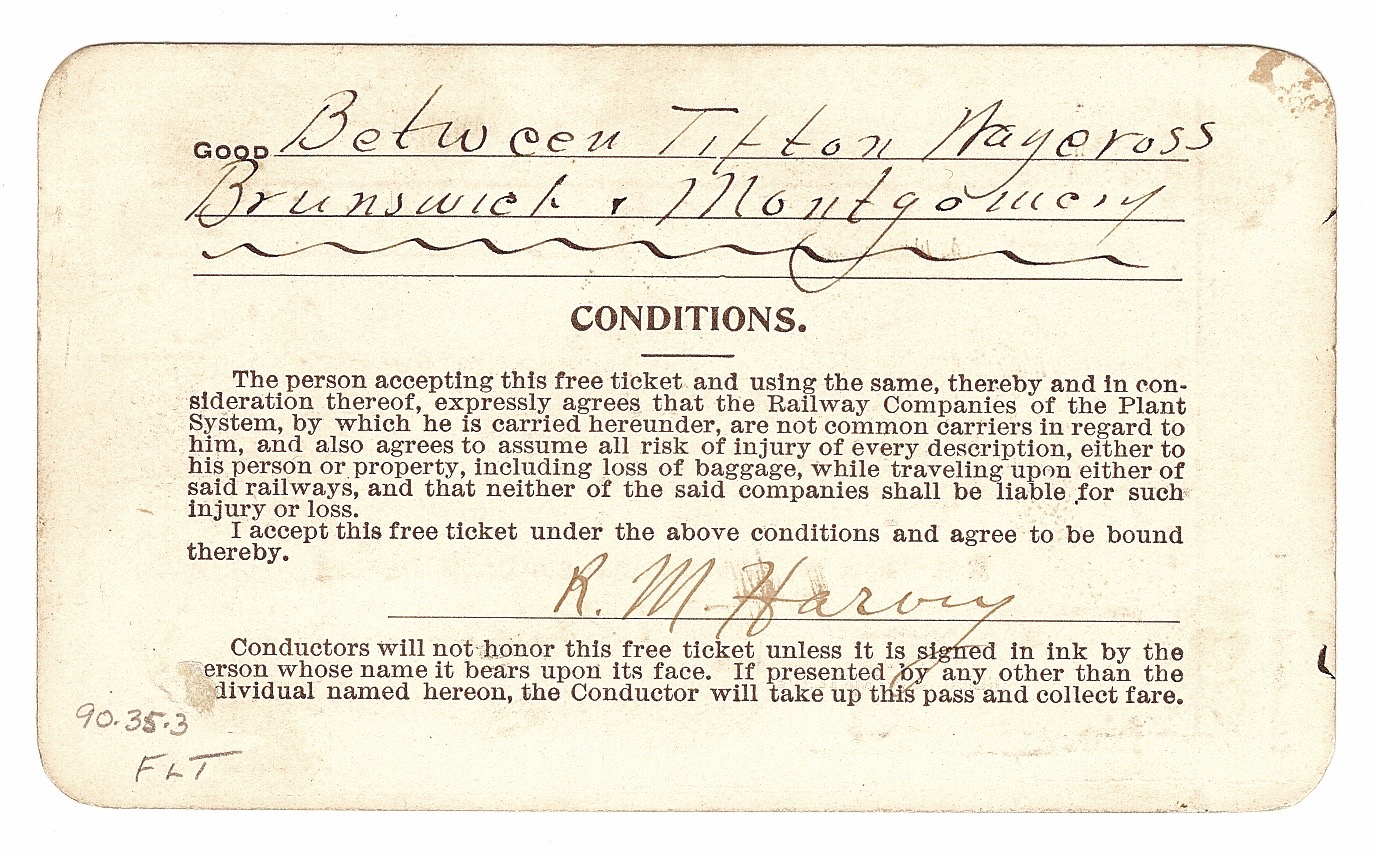 GOOD Between Tifton Waycross
Brunswick & Montgomery
CONDITIONS.
The person accepting this free ticket and using the same, thereby and in con-
sideration thereof, expressly agrees that the Railway Companies of the Plant
System, by which he is carried hereunder, are not common carriers in regard to
him, and also agrees to assume all risk of injury of every description, either to
his person or property, including loss of baggage, while traveling upon either of
said railways, and that neither of the said companies shall be liable for such
injury or loss.
I accept this free ticket under the above conditions and agree to be bound
thereby.
R. M. Harvey
Conductors will not honor this free ticket unless it is signed in ink by the
erson whose name it bears upon its face. If presented by any other than the
dividual named hereon, the Conductor will take up this pass and collect fare.
90.35.3
FLT